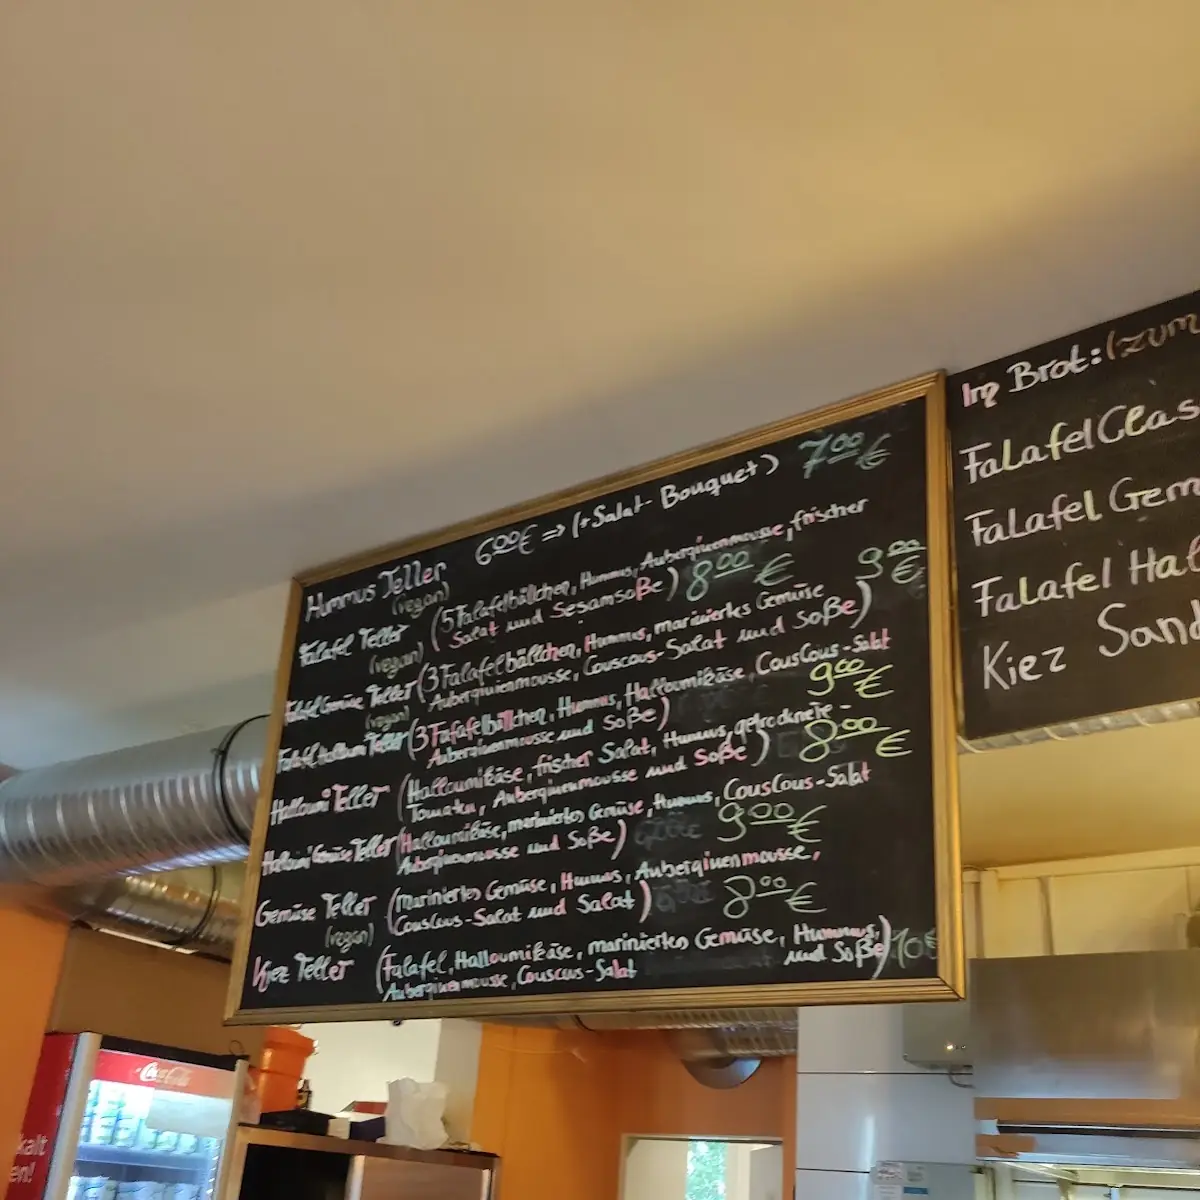 Hummus Teller 6,00€ ⇒ (+Salat-Bouquet) 7,00 €
(vegan)
Falafel Teller (5 Falafelbällchen, Hummus, Auberginenmousse, frischer
(vegan) Salat und Sesamsoße) 8,00 €
Falafel Gemüse Teller (3 Falafelbällchen, Hummus, mariniertes Gemüse 9,00 €
(vegan) Auberginienmousse, Couscous-Salat und Soße)
Falafel Halloumi Teller (3 Fafafelbällchen, Hummus, Halloumikäse, CousCous-Salat
Auberginenmousse und Soße) 9,00 €
Halloumi Teller (Halloumikäse, frischer Salat, Hummus, getrocknete-
Tomaten, Auberginenmousse und Soße) 8,00 €
Halloumi Gemüse Teller (Halloumikäse, mariniertes Gemüse, Hummus, CousCous-Salat
Auberginenmousse und Soße) 9,00 €
Gemüse Teller (mariniertes Gemüse, Hummus, Auberginenmousse,
(vegan) CousCous-Salat und Salat) 8,00 €
Kiez Teller (Falafel, Halloumikäse, mariniertes Gemüse, Hummus,
Auberginenmousse, Couscous-Salat und Soße) 10€
Im Brot: (zum
Falafel Clas
Falafel Gem
Falafel Hal
Kiez Sand
Coca-Cola
kalt
en!